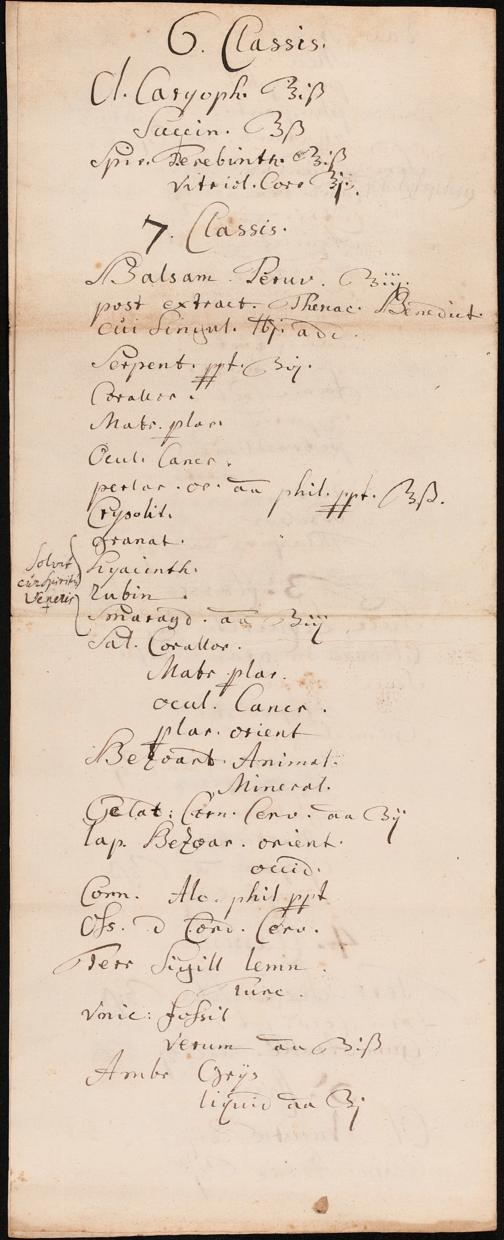 6. Classis.
Ol. Caryoph. ʒiß
Succin. ʒß
Spir. Terebinth. ʒiß
Vitriol. Corr ʒij.
7. Classis.
Balsam. Peruv. ʒiij.
post extract. Theriac. Benedict.
cui singul. ℔j. adde.
Serpent. ppt. ʒij.
Corallor.
Matr. plar.
Ocul. Cancr.
perlar. or. aa phil. ppt. ʒß.
Crysolit.
Granat.
Hyacinth.
rubin.
Smaragd. aa ʒiij
Solvit
cum spiritu
Veneris
Sal. Corallor.
Matr plar.
ocul. Cancr.
plar. orient
Bezoart. Animal.
Mineral.
Gelat: Corn. Cerv. aa ʒij
lap. Bezoar. orient.
occid.
Corn. Alc. phil ppt
Oss. d Cord. Cerv.
Terr Sigill lemn.
Turc.
Unic: fossil
verum aa ʒiß
Ambr Grys
liquid aa ʒj